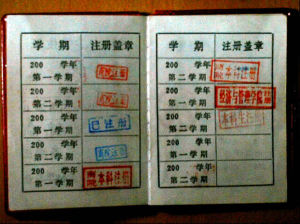 学期 注册盖章
200 学年
第一学期
200 学年
第二学期
200 学年
第一学期 已注册
200 学年
第二学期
200 学年
第一学期 本科注册
学期 注册盖章
200 学年
第二学期 本科注册
200 学年
第一学期 经济与管理学院
200 学年
第二学期 本科注册
200 学年
第一学期
200 学年
第二学期